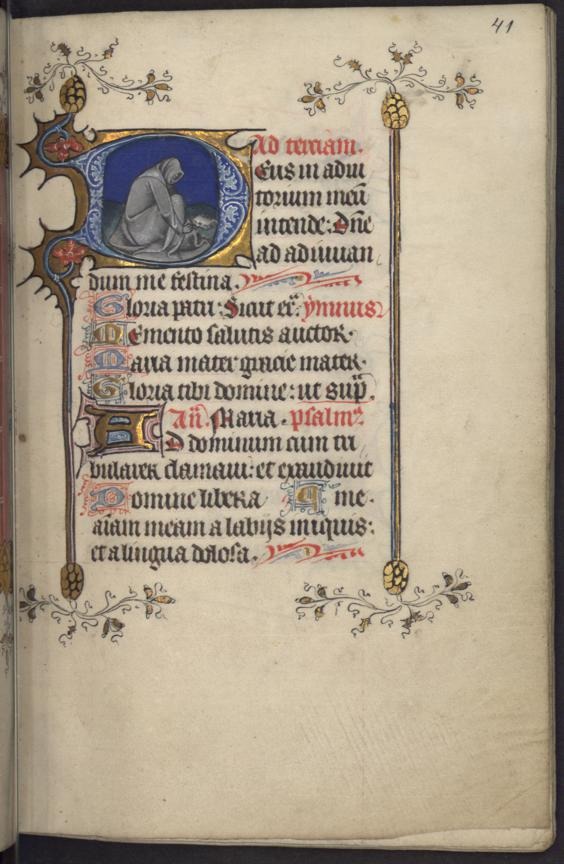 41
Ad terciam.
Deus in adiu
torium meū
intende: Dñe
ad adiuuan
dum me festina.
Gloria patri: Sicut er̃. ymnus
Memento salutis auctor.
Maria mater gracie mater.
Gloria tibi domine: ut sup̃.
Añ. Maria. psalm9.
Ad dominum cum tri
bularer clamaui: et exaudiuit
Domine libera a me.
aīam meam a labijs iniquis:
et a lingua dolosa.